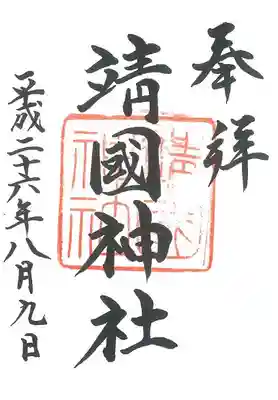 奉拝
靖國神社
平成二十六年八月九日